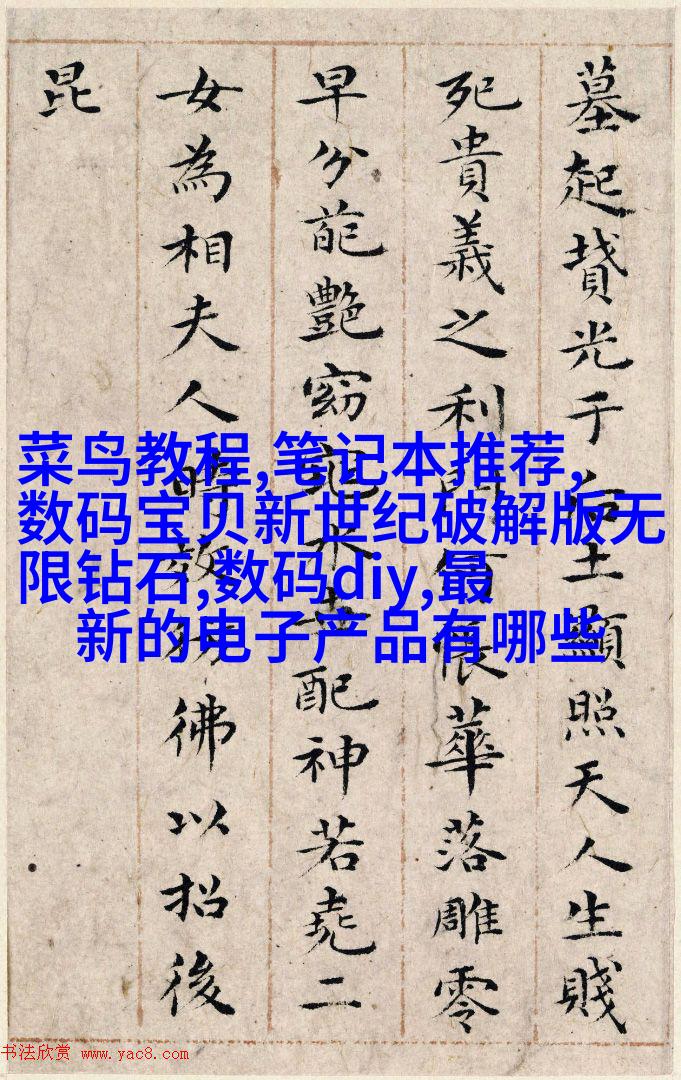 墓起墳光于后土顯照天人生賤
死貴義之利門悵華落雕零
早分葩艷窈窕永世配神若堯二
女為相夫人時效彿以招後
昆
菜鸟教程,笔记本推荐,
数码宝贝新世纪破解版无
限钻石,数码diy,最
新的电子产品有哪些
书法欣赏 www.yac8.com